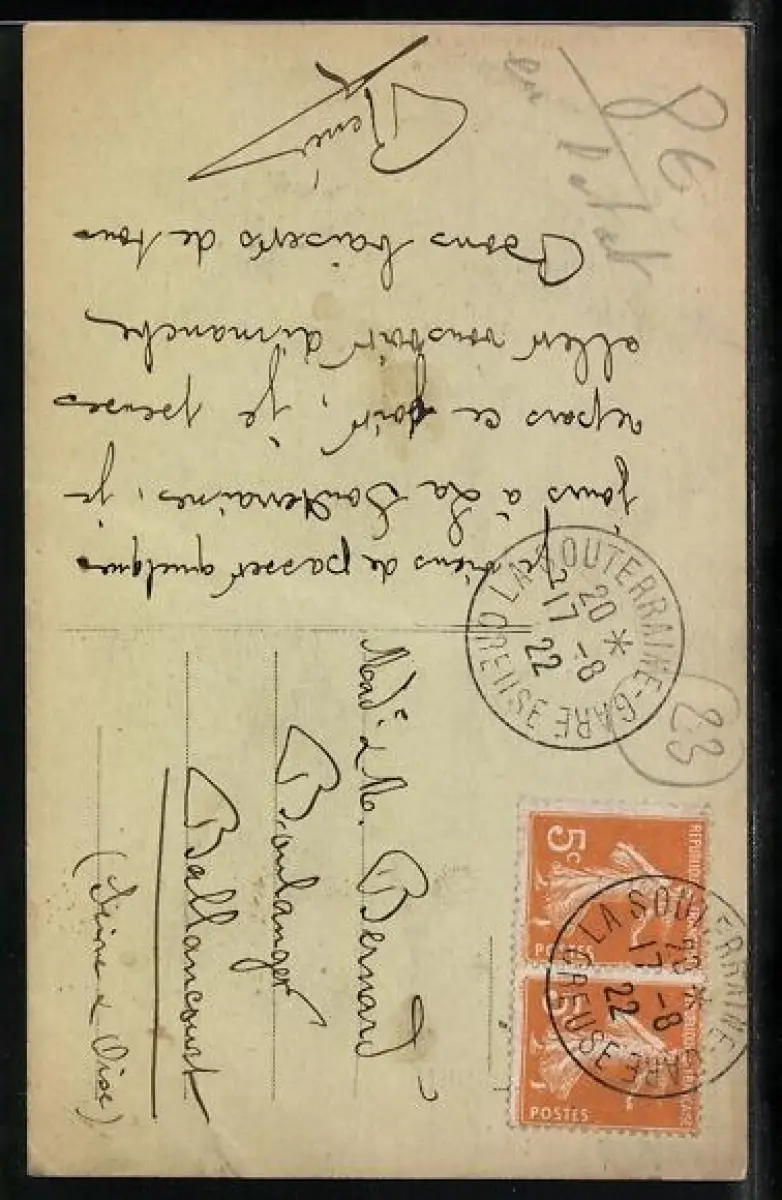 86
Je viens de passer quelques
jours à La Souterraine, je
repars ce soir, je penses
aller vous voir dimanche
Bons baisers de tous
René
LA SOUTERRAINE-GARE
20 *
17 -8
22
CREUSE
23
RÉPUBLIQUE FRANÇAISE
5c
POSTES
RÉPUBLIQUE FRANÇAISE
5c
POSTES
LA SOUTERRAINE-GARE
20 *
17 -8
22
CREUSE
Mad. & M. Bernard
Boulanger
Ballancourt
(Seine & Oise)